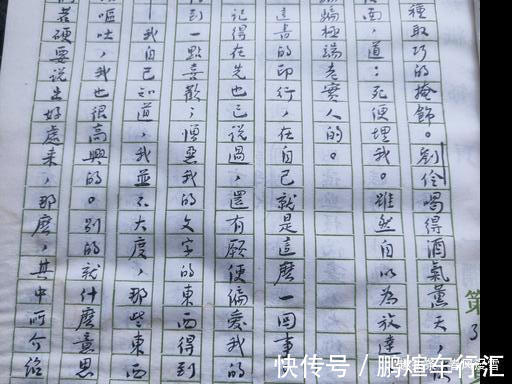 種取巧的掩飾。劉伶喝得酒氣薰天，
面，道：死便埋我。雖然自以為放達
騙極端老實人的。
這書的印行，在自己就是這麼一回事
記得在先也已說過，還有願使偏愛我的
得到一點喜歡；憎惡我的文字的東西得到
——我自己知道，我並不大度，那些東西
嘔吐，我也很高興的。別的就什麼意思
若硬要說出好處來，那麼，其中所介紹
第
快传号 / 鹏煊车行汇